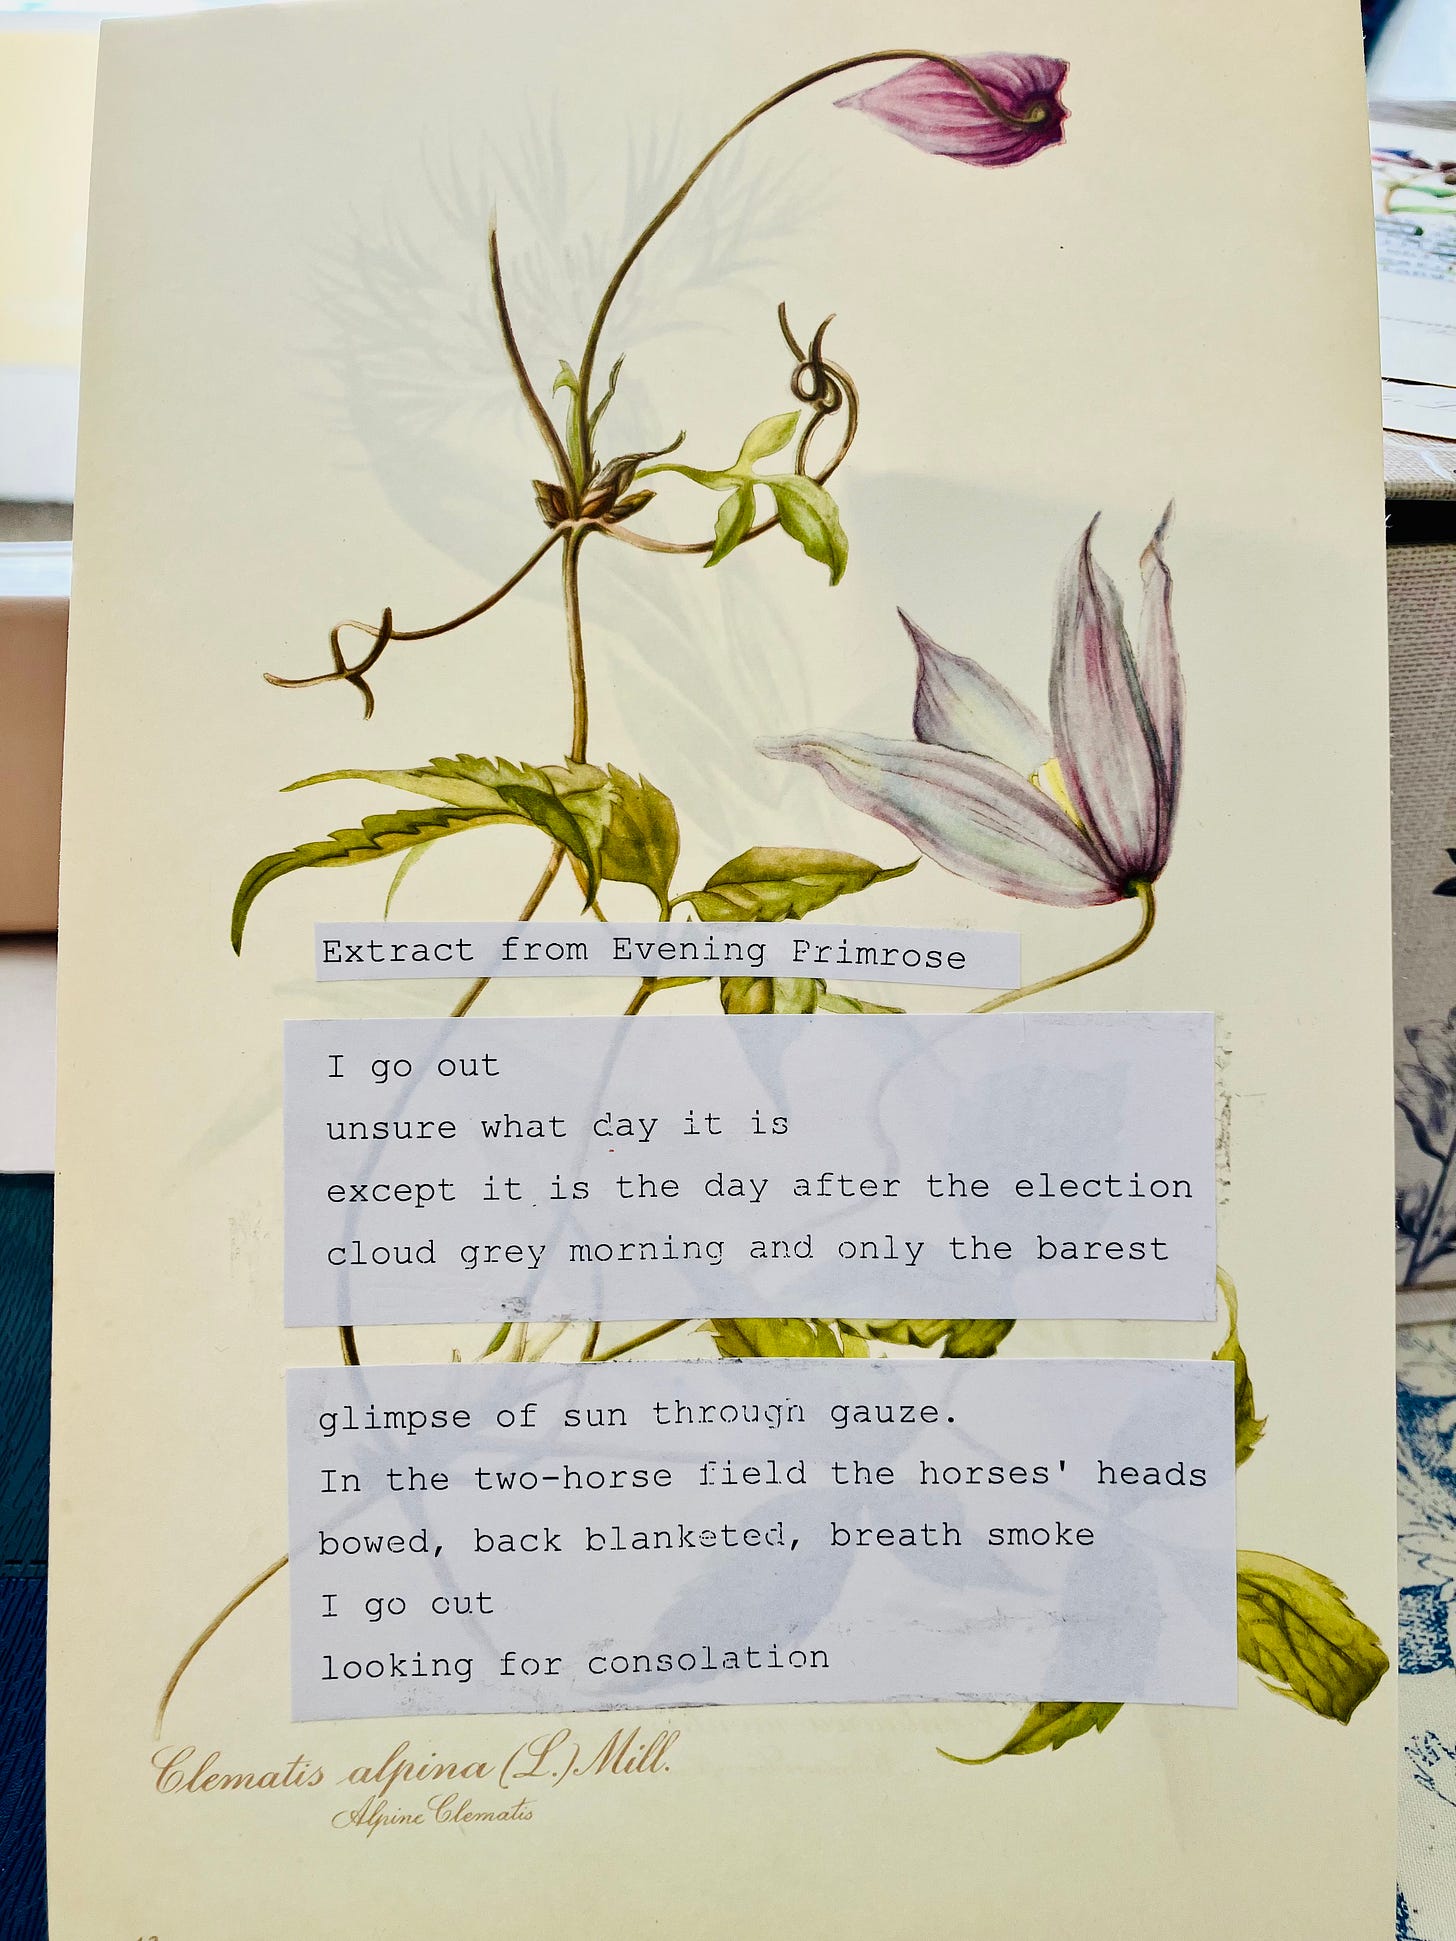 Extract from Evening Primrose
I go out
unsure what day it is
except it is the day after the election
cloud grey morning and only the barest
glimpse of sun through gauze.
In the two-horse field the horses' heads
bowed, back blanketed, breath smoke
I go out
looking for consolation
Clematis alpina (L.) Mill.
Alpine Clematis